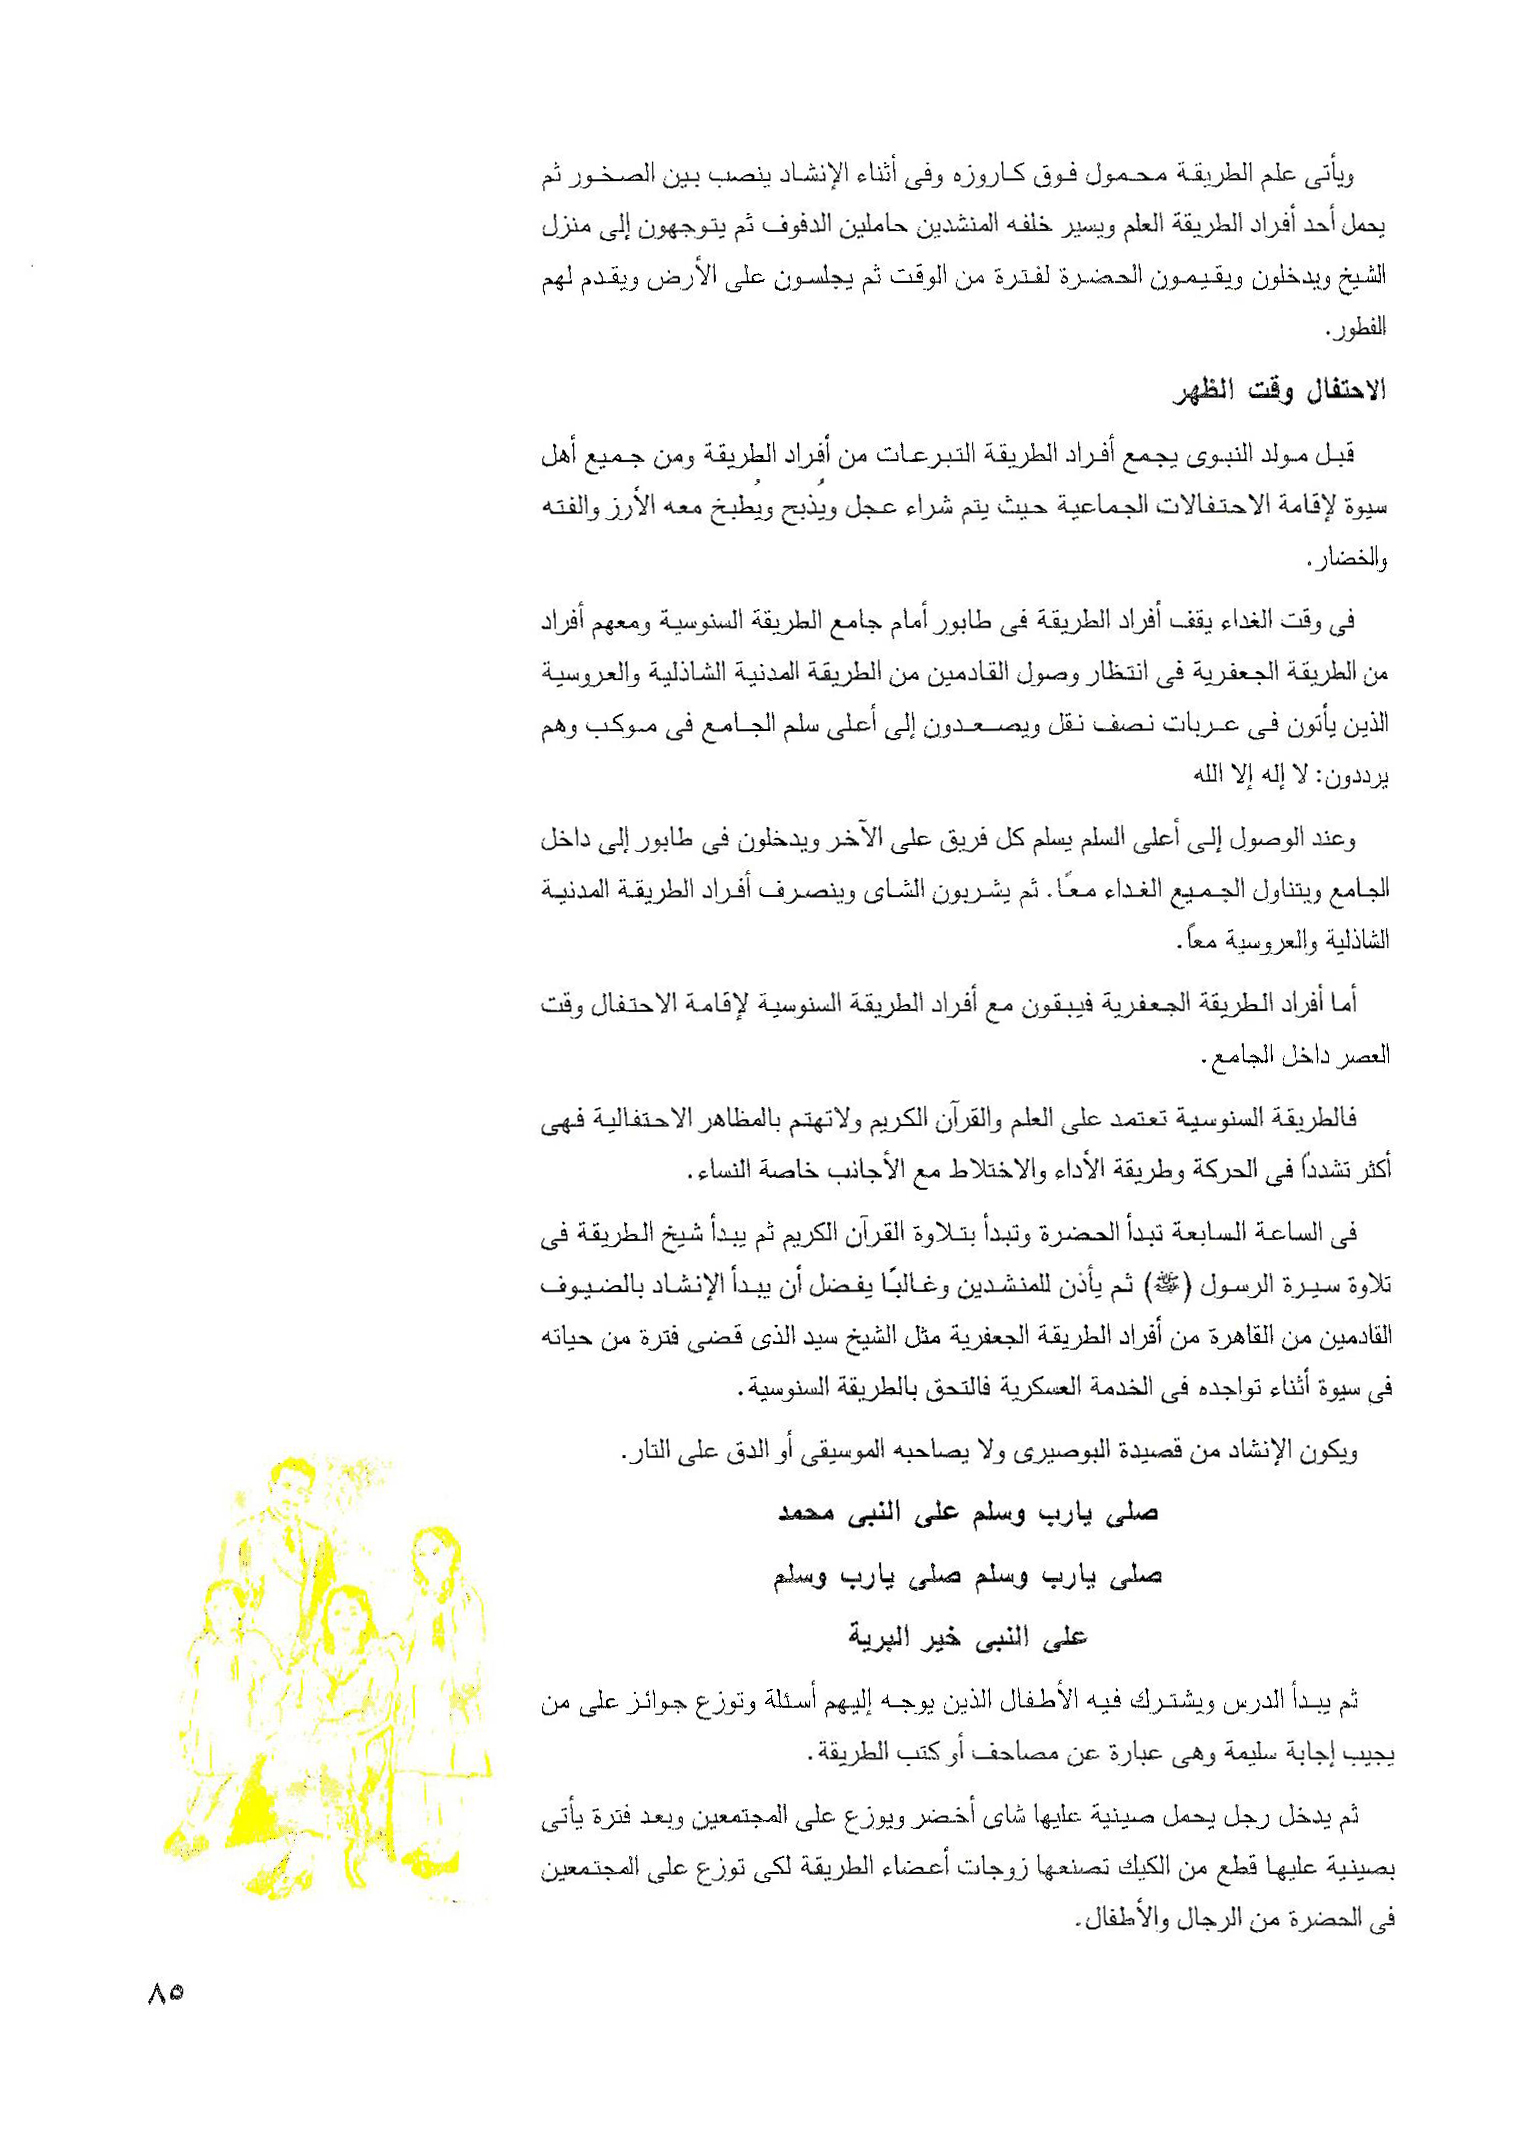 ويأتى علم الطريقة محمول فوق كاروزه وفى أثناء الإنشاد ينصب بين الصخور ثم
يحمل أحد أفراد الطريقة العلم ويسير خلفه المنشدين حاملين الدفوف ثم يتوجهون إلى منزل
الشيخ ويدخلون ويقيمون الحضرة لفترة من الوقت ثم يجلسون على الأرض ويقدم لهم
الفطور.
الاحتفال وقت الظهر
قبل مولد النبوى يجمع أفراد الطريقة التبرعات من أفراد الطريقة ومن جميع أهل
سيوة لإقامة الاحتفالات الجماعية حيث يتم شراء عجل ويُذبح ويُطبخ معه الأرز والفته
والخضار.
فى وقت الغداء يقف أفراد الطريقة فى طابور أمام جامع الطريقة السنوسية ومعهم أفراد
من الطريقة الجعفرية فى انتظار وصول القادمين من الطريقة المدنية الشاذلية والعروسية
الذين يأتون فى عربات نصف نقل ويصعدون إلى أعلى سلم الجامع فى موكب وهم
يرددون: لا إله إلا الله
وعند الوصول إلى أعلى السلم يسلم كل فريق على الآخر ويدخلون فى طابور إلى داخل
الجامع ويتناول الجميع الغداء معًا. ثم يشربون الشاى وينصرف أفراد الطريقة المدنية
الشاذلية والعروسية معاً.
أما أفراد الطريقة الجعفرية فيبقون مع أفراد الطريقة السنوسية لإقامة الاحتفال وقت
العصر داخل الجامع.
فالطريقة السنوسية تعتمد على العلم والقرآن الكريم ولاتهتم بالمظاهر الاحتفالية فهى
أكثر تشدداً فى الحركة وطريقة الأداء والاختلاط مع الأجانب خاصة النساء.
فى الساعة السابعة تبدأ الحضرة وتبدأ بتلاوة القرآن الكريم ثم يبدأ شيخ الطريقة فى
تلاوة سيرة الرسول (ﷺ) ثم يأذن للمنشدين وغالبًا يفضل أن يبدأ الإنشاد بالضيوف
القادمين من القاهرة من أفراد الطريقة الجعفرية مثل الشيخ سيد الذى قضى فترة من حياته
فى سيوة أثناء تواجده فى الخدمة العسكرية فالتحق بالطريقة السنوسية.
ويكون الإنشاد من قصيدة البوصيرى ولا يصاحبه الموسيقى أو الدق على التار.
صلى يارب وسلم على النبى محمد
صلى يارب وسلم صلى يارب وسلم
على النبى خير البرية
ثم يبدأ الدرس ويشترك فيه الأطفال الذين يوجه إليهم أسئلة وتوزع جوائز على من
يجيب إجابة سليمة وهى عبارة عن مصاحف أو كتب الطريقة.
ثم يدخل رجل يحمل صينية عليها شاى أخضر ويوزع على المجتمعين وبعد فترة يأتى
بصينية عليها قطع من الكيك تصنعها زوجات أعضاء الطريقة لكى توزع على المجتمعين
فى الحضرة من الرجال والأطفال.
٨٥